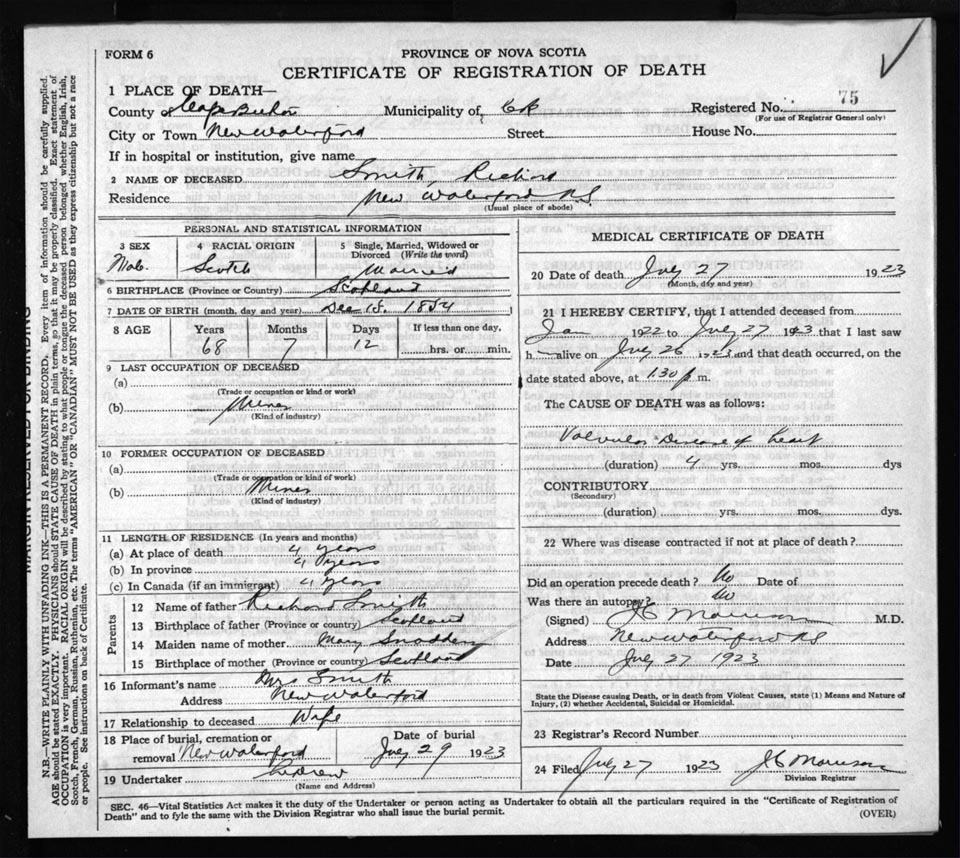 FORM 6
PROVINCE OF NOVA SCOTIA
CERTIFICATE OF REGISTRATION OF DEATH
1 PLACE OF DEATH—
County of Cape Breton Municipality of C B Registered No. 75
(For use of Registrar General only)
City or Town New Waterford Street House No.
If in hospital or institution, give name
2 NAME OF DECEASED Smith, Richard
Residence New Waterford N.S.
(Usual place of abode)
PERSONAL AND STATISTICAL INFORMATION
3 SEX 4 RACIAL ORIGIN 5 Single, Married, Widowed or Divorced (Write the word)
Male Scotch Married
6 BIRTHPLACE (Province or Country) Scotland
7 DATE OF BIRTH (month, day and year) Dec 15. 1854
8 AGE Years Months Days If less than one day,
68 7 12 hrs. or min.
9 LAST OCCUPATION OF DECEASED
(a)
(Trade or occupation or kind or work)
(b) Mines
(Kind of industry)
10 FORMER OCCUPATION OF DECEASED
(a)
(Trade or occupation or kind of work)
(b) Mines
(Kind of industry)
11 LENGTH OF RESIDENCE (In years and months)
(a) At place of death 4 years
(b) In province 4 years
(c) In Canada (if an immigrant) 4 years
Parents
12 Name of father Richard Smith
13 Birthplace of father (Province or country) Scotland
14 Maiden name of mother Mary Snadden
15 Birthplace of mother (Province or country) Scotland
16 Informant's name Mrs Smith
Address New Waterford
17 Relationship to deceased Wife
18 Place of burial, cremation or removal New Waterford Date of burial July 29 1923
19 Undertaker
(Name and Address)
MEDICAL CERTIFICATE OF DEATH
20 Date of death July 27 1923
(Month, day and year)
21 I HEREBY CERTIFY, that I attended deceased from
Jan 1922 to July 27, 1923 that I last saw
h alive on July 26 1923 and that death occurred, on the
date stated above, at 1.30 p m.
The CAUSE OF DEATH was as follows:
Valvular Disease of Heart
(duration) 4 yrs. mos. dys
CONTRIBUTORY
(Secondary)
(duration) yrs. mos. dys.
22 Where was disease contracted if not at place of death?
Did an operation precede death? No Date of
Was there an autopsy? No
(Signed) J C Morrison M.D.
Address New Waterford N S
Date July 27 1923
State the Disease causing Death, or in death from Violent Causes, state (1) Means and Nature of
Injury, (2) whether Accidental, Suicidal or Homicidal.
23 Registrar's Record Number
24 Filed July 27 1923 J C Morrison
Division Registrar
SEC. 46—Vital Statistics Act makes it the duty of the Undertaker or person acting as Undertaker to obtain all the particulars required in the "Certificate of Registration of
Death" and to fyle the same with the Division Registrar who shall issue the burial permit. (OVER)
MARGIN RESERVED FOR BINDING
N.B.—WRITE PLAINLY WITH UNFADING INK—THIS IS A PERMANENT RECORD. Every item of information should be carefully supplied.
AGE should be stated EXACTLY. PHYSICIANS should STATE CAUSE OF DEATH in plain terms, so that it may be properly classified. Exact statement of
OCCUPATION is very important. RACIAL ORIGIN will be described by stating to what people or tongue the deceased person belonged whether English, Irish,
Scotch, French, German, Russian, Ruthenian, etc. The terms "AMERICAN" OR "CANADIAN" MUST NOT BE USED as they express citizenship but not a race
or people. See instructions on back of Certificate.